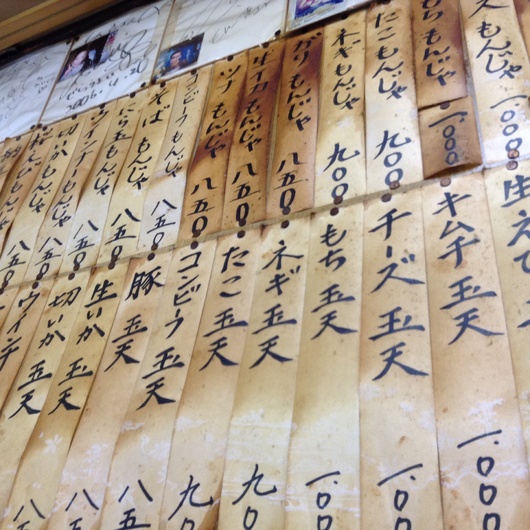 一、〇〇〇
もちもんじゃ 一、〇〇〇
たこもんじゃ 九〇〇
ネギもんじゃ 九〇〇
ガリもんじゃ 八五〇
生イカもんじゃ 八五〇
ツナもんじゃ 八五〇
コンビーフもんじゃ
そばもんじゃ 八五〇
にら玉もんじゃ 八五〇
ウインナーもんじゃ 八五〇
切いかもんじゃ 八五〇
キムチ玉天 一、〇〇
チーズ玉天 一、〇〇
もち玉天 一、〇〇
ネギ玉天 九〇
たこ玉天 九〇
コンビーフ玉天
豚玉天 八五
生いか玉天 八五
切いか玉天 八五
ウインナ